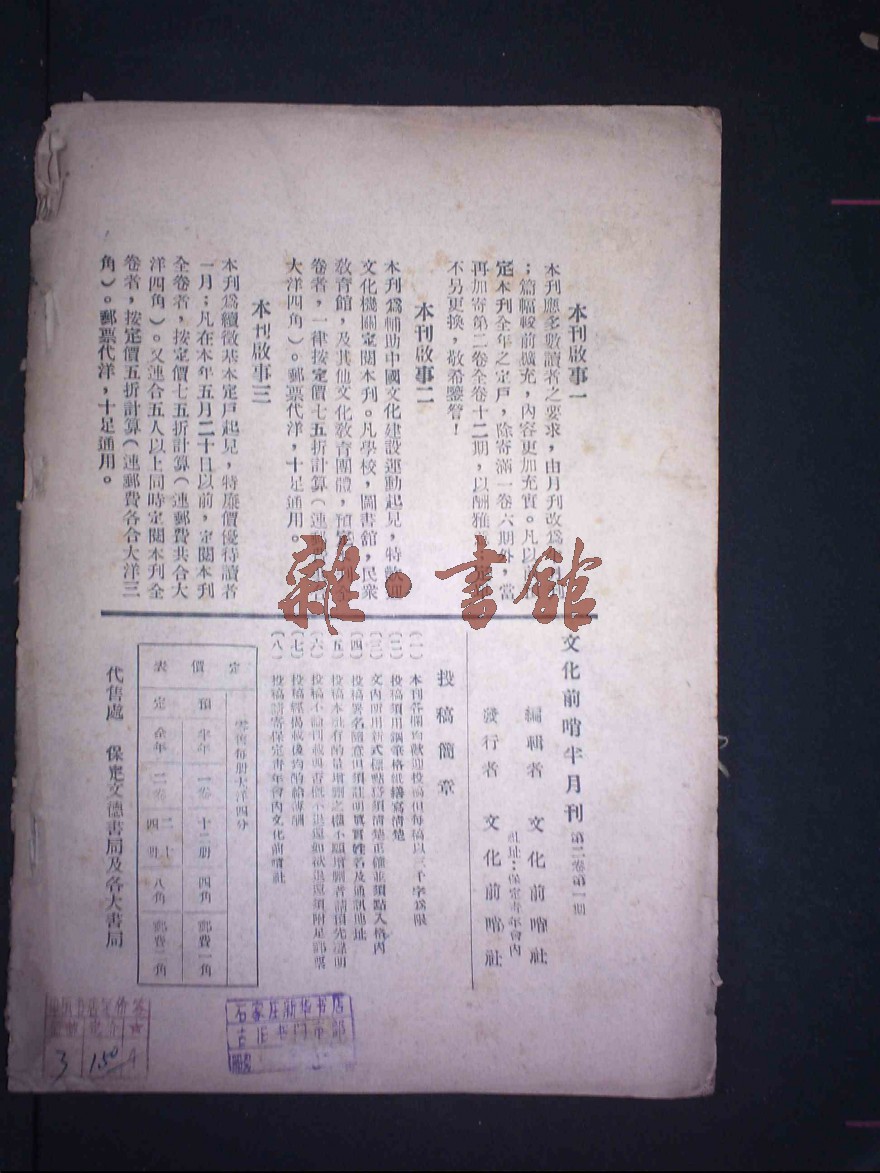 本刊啟事一
本刊應多數讀者之要求，由月刊改爲
；篇幅較前擴充，內容更加充實。凡以
定本刊全年之定戶，除寄滿一卷六期外，當
再加寄第二卷全卷十二期，以酬雅
不另更換，敬希鑒詧！
本刊啟事二
本刊爲輔助中國文化建設運動起見，特歡迎
文化機關定閱本刊。凡學校，圖書館，民衆
敎育館，及其他文化敎育團體，預定本刊全
卷者，一律按定價七五折計算（連
大洋四角）。郵票代洋，十足通用。
本刊啟事三
本刊爲續徵基本定戶起見，特廉價優待讀者
一月；凡在本年五月二十日以前，定閱本刊
全卷者，按定價七五折計算（連郵費共合大
洋四角）。又連合五人以上同時定閱本刊全
卷者，按定價五折計算（連郵費各合大洋三
角）。郵票代洋，十足通用。
文化前哨半月刊 第二卷第一期
編輯者 文化前哨社
社址：保定青年會內
發行者 文化前哨社
投稿簡章
（一） 本刊各欄均歡迎投稿但每稿以三千字爲限
（二） 投稿須用鋼筆格紙繕寫清楚
（三） 文內所用新式標點務須清楚正確並須點入格內
（四） 投稿署名隨意但須註明眞實姓名及通訊地址
（五） 投稿本社有酌量增刪之權不願增刪者請預先聲明
（六） 投稿不論刊載與否概不退還如欲退還須附足郵票
（七） 投稿經揭載後均酌給薄酬
（八） 投稿請寄保定青年會內文化前哨社
定價表
零售每册大洋四分
預定
半年 一卷 十二册 四角 郵費一角
全年 二卷 二十四册 八角 郵費二角
代售處 保定文德書局及各大書局
雜·書館
石家庄新华书店
古旧书门市部
3 1.50